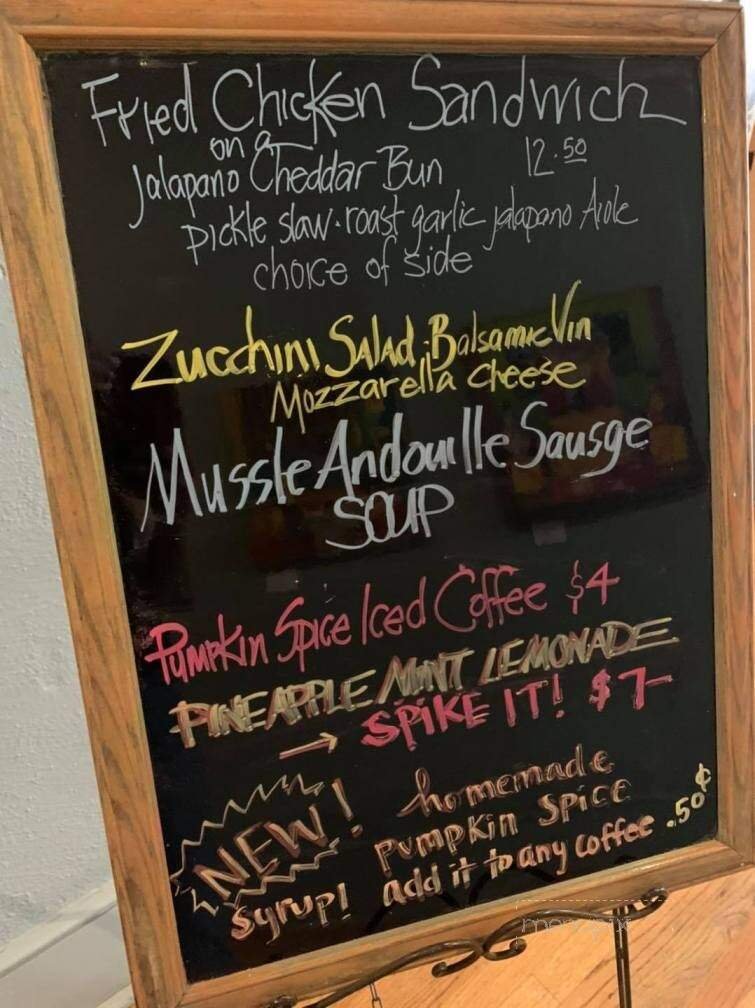 Fried Chicken Sandwich
on a
Jalapano Cheddar Bun 12.50
pickle slaw · roast garlic jalapano Aiole
choice of side
Zucchini Salad · Balsamic Vin
Mozzarella cheese
Mussle Andouille Sausge
SOUP
Pumpkin Spice Iced Coffee $4
PINEAPPLE MINT LEMONADE
→ SPIKE IT! $7-
NEW! homemade
pumpkin spice
syrup! add it to any coffee .50¢